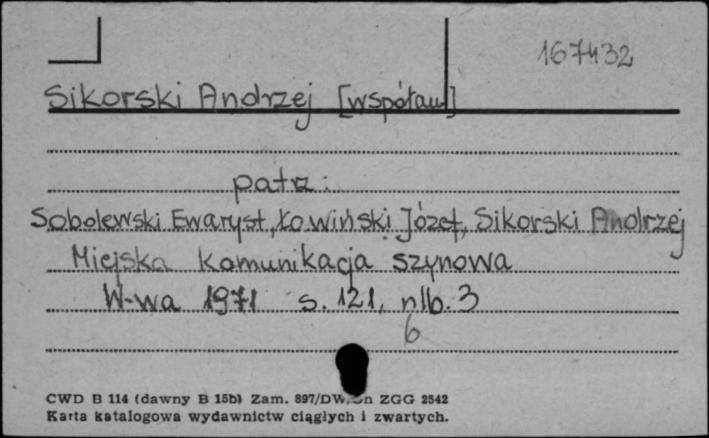 167432
Sikorski Andrzej [współaut]
patrz:
Sobolewski Ewaryst, Łowiński Józef, Sikorski Andrzej
Miejska komunikacja szynowa
W-wa 1971 s. 121, nlb. 3
6
CWD B 114 (dawny B 15b) Zam. 897/DW. ZGG 2542
Karta katalogowa wydawnictw ciągłych i zwartych.